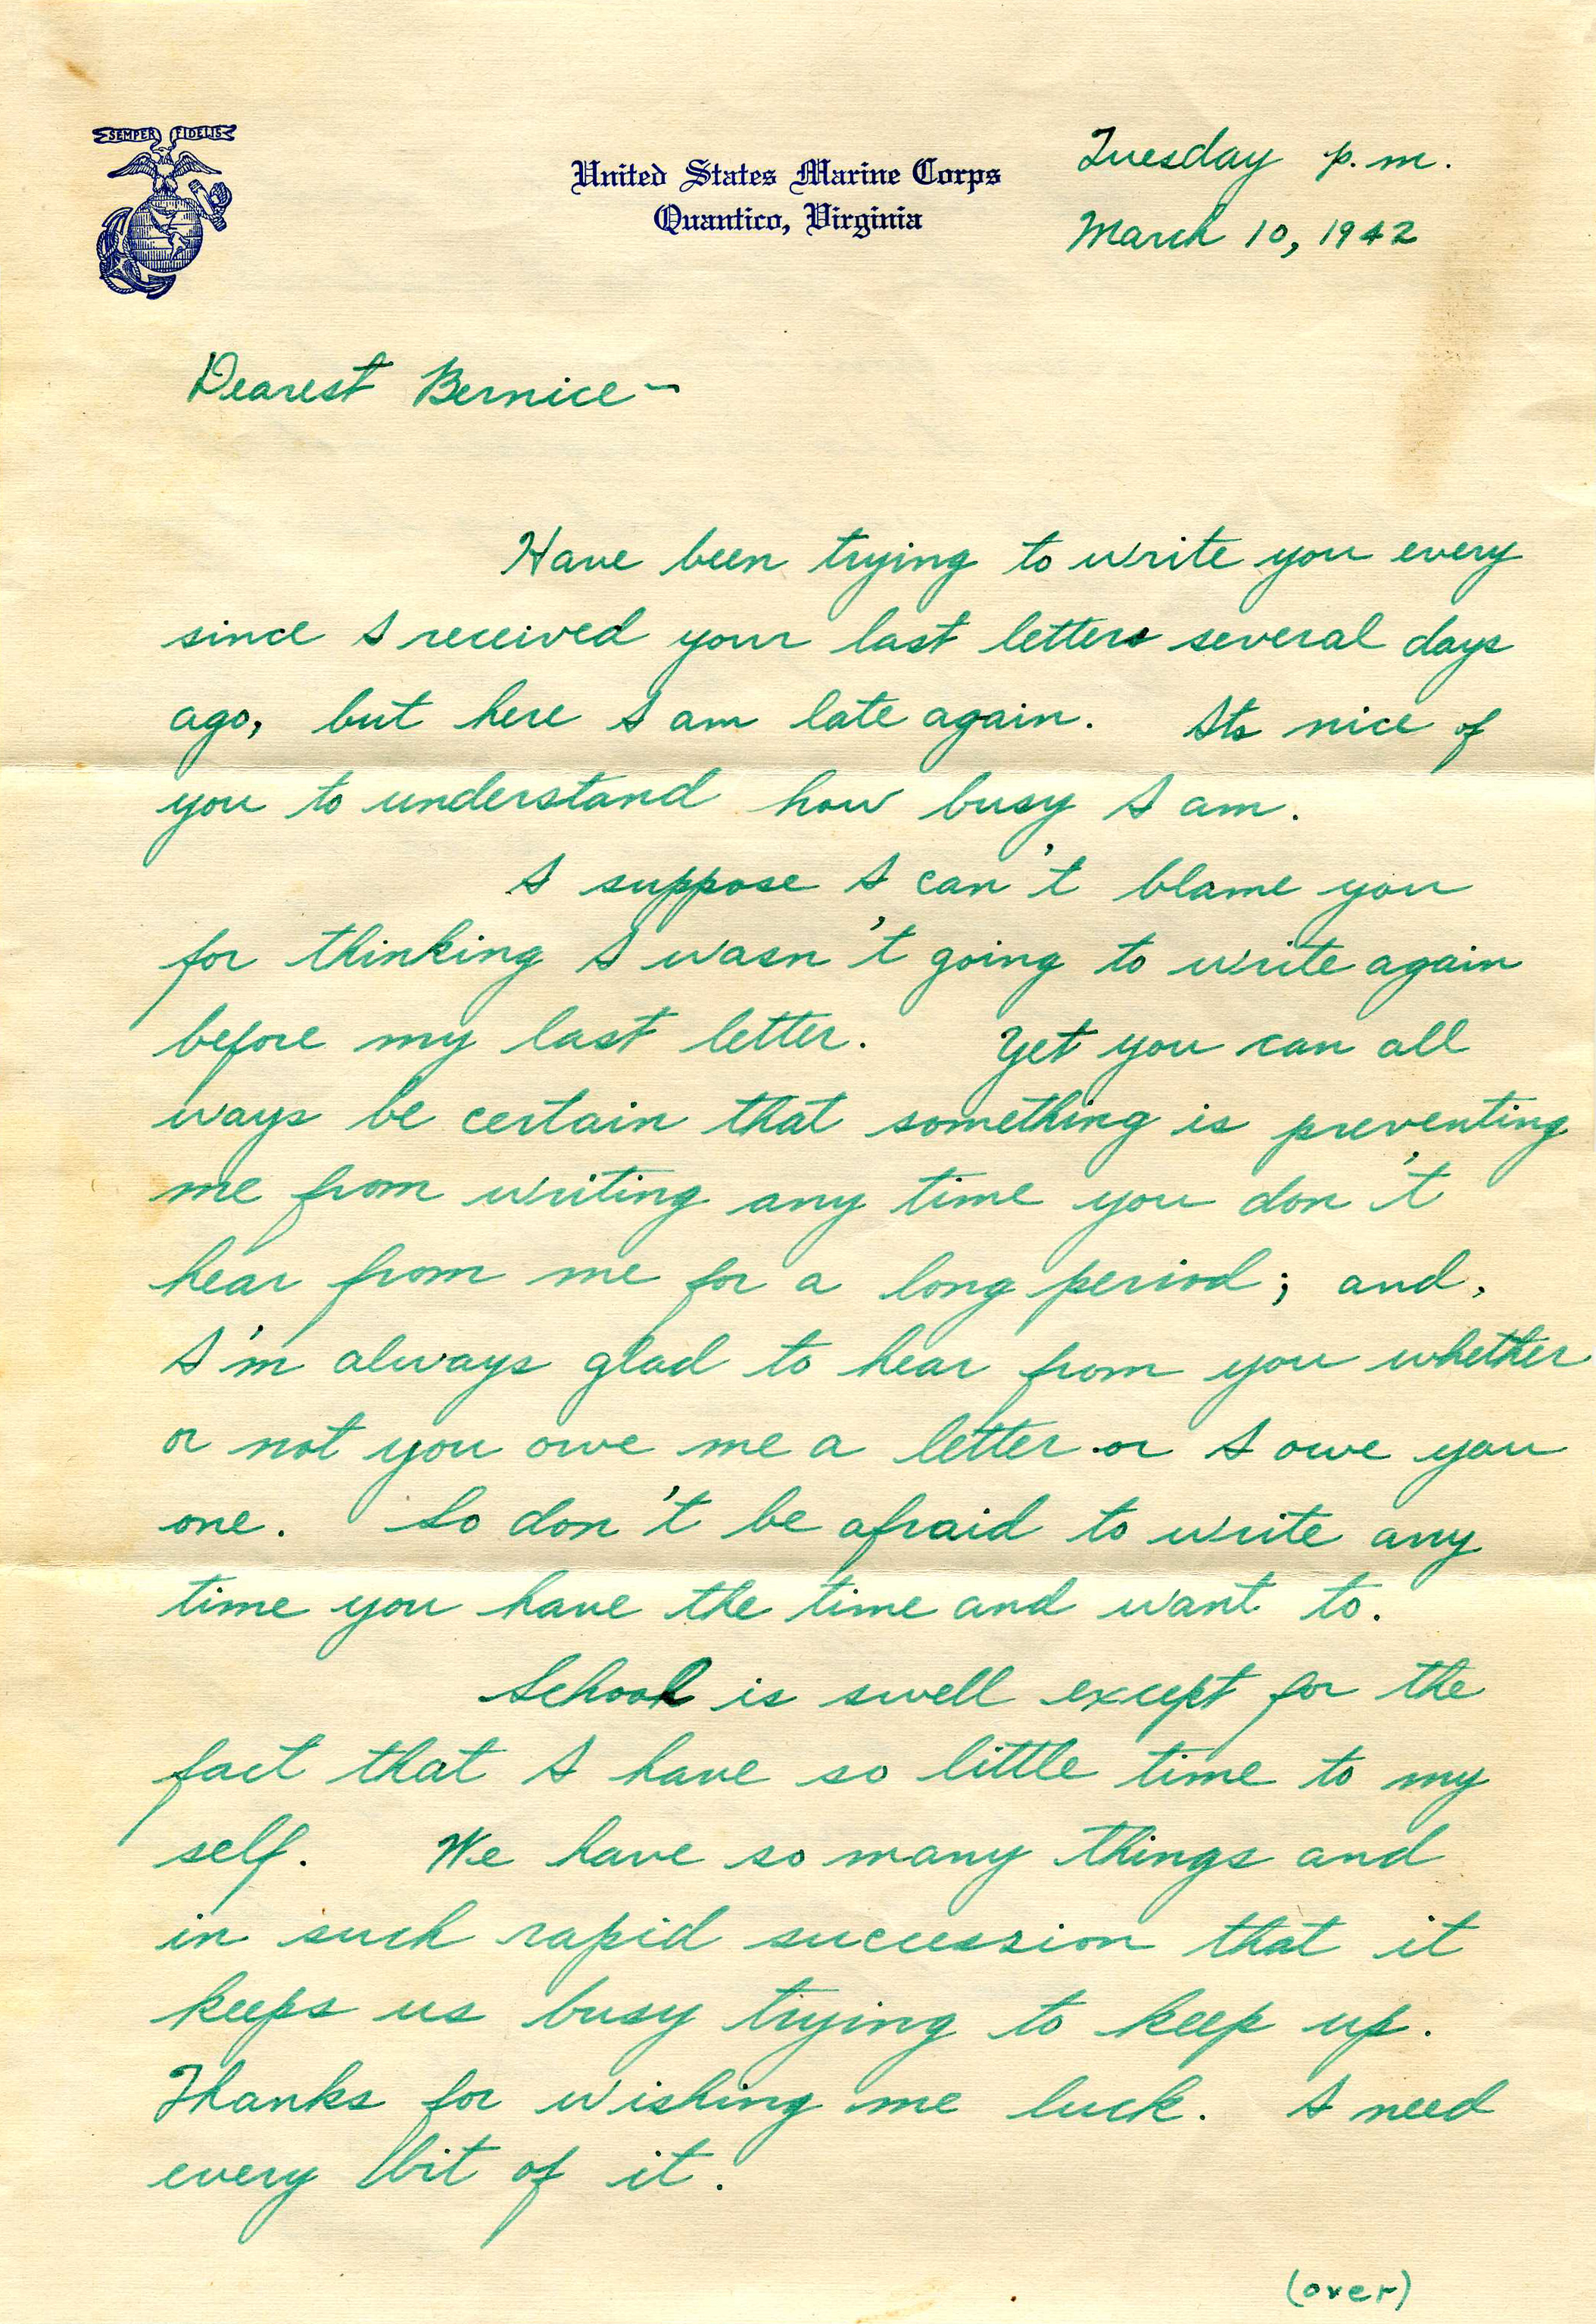 SEMPER FIDELIS
United States Marine Corps
Quantico, Virginia
Tuesday p.m.
March 10, 1942
Dearest Bernice –
Have been trying to write you every
since I received your last letters several days
ago, but here I am late again. Its nice of
you to understand how busy I am.
I suppose I can't blame you
for thinking I wasn't going to write again
before my last letter. Yet you can all
ways be certain that something is preventing
me from writing any time you don't
hear from me for a long period; and,
I'm always glad to hear from you whether
or not you owe me a letter or I owe you
one. So don't be afraid to write any
time you have the time and want to.
School is swell except for the
fact that I have so little time to my
self. We have so many things and
in such rapid succession that it
keeps us busy trying to keep up.
Thanks for wishing me luck. I need
every bit of it.
(over)